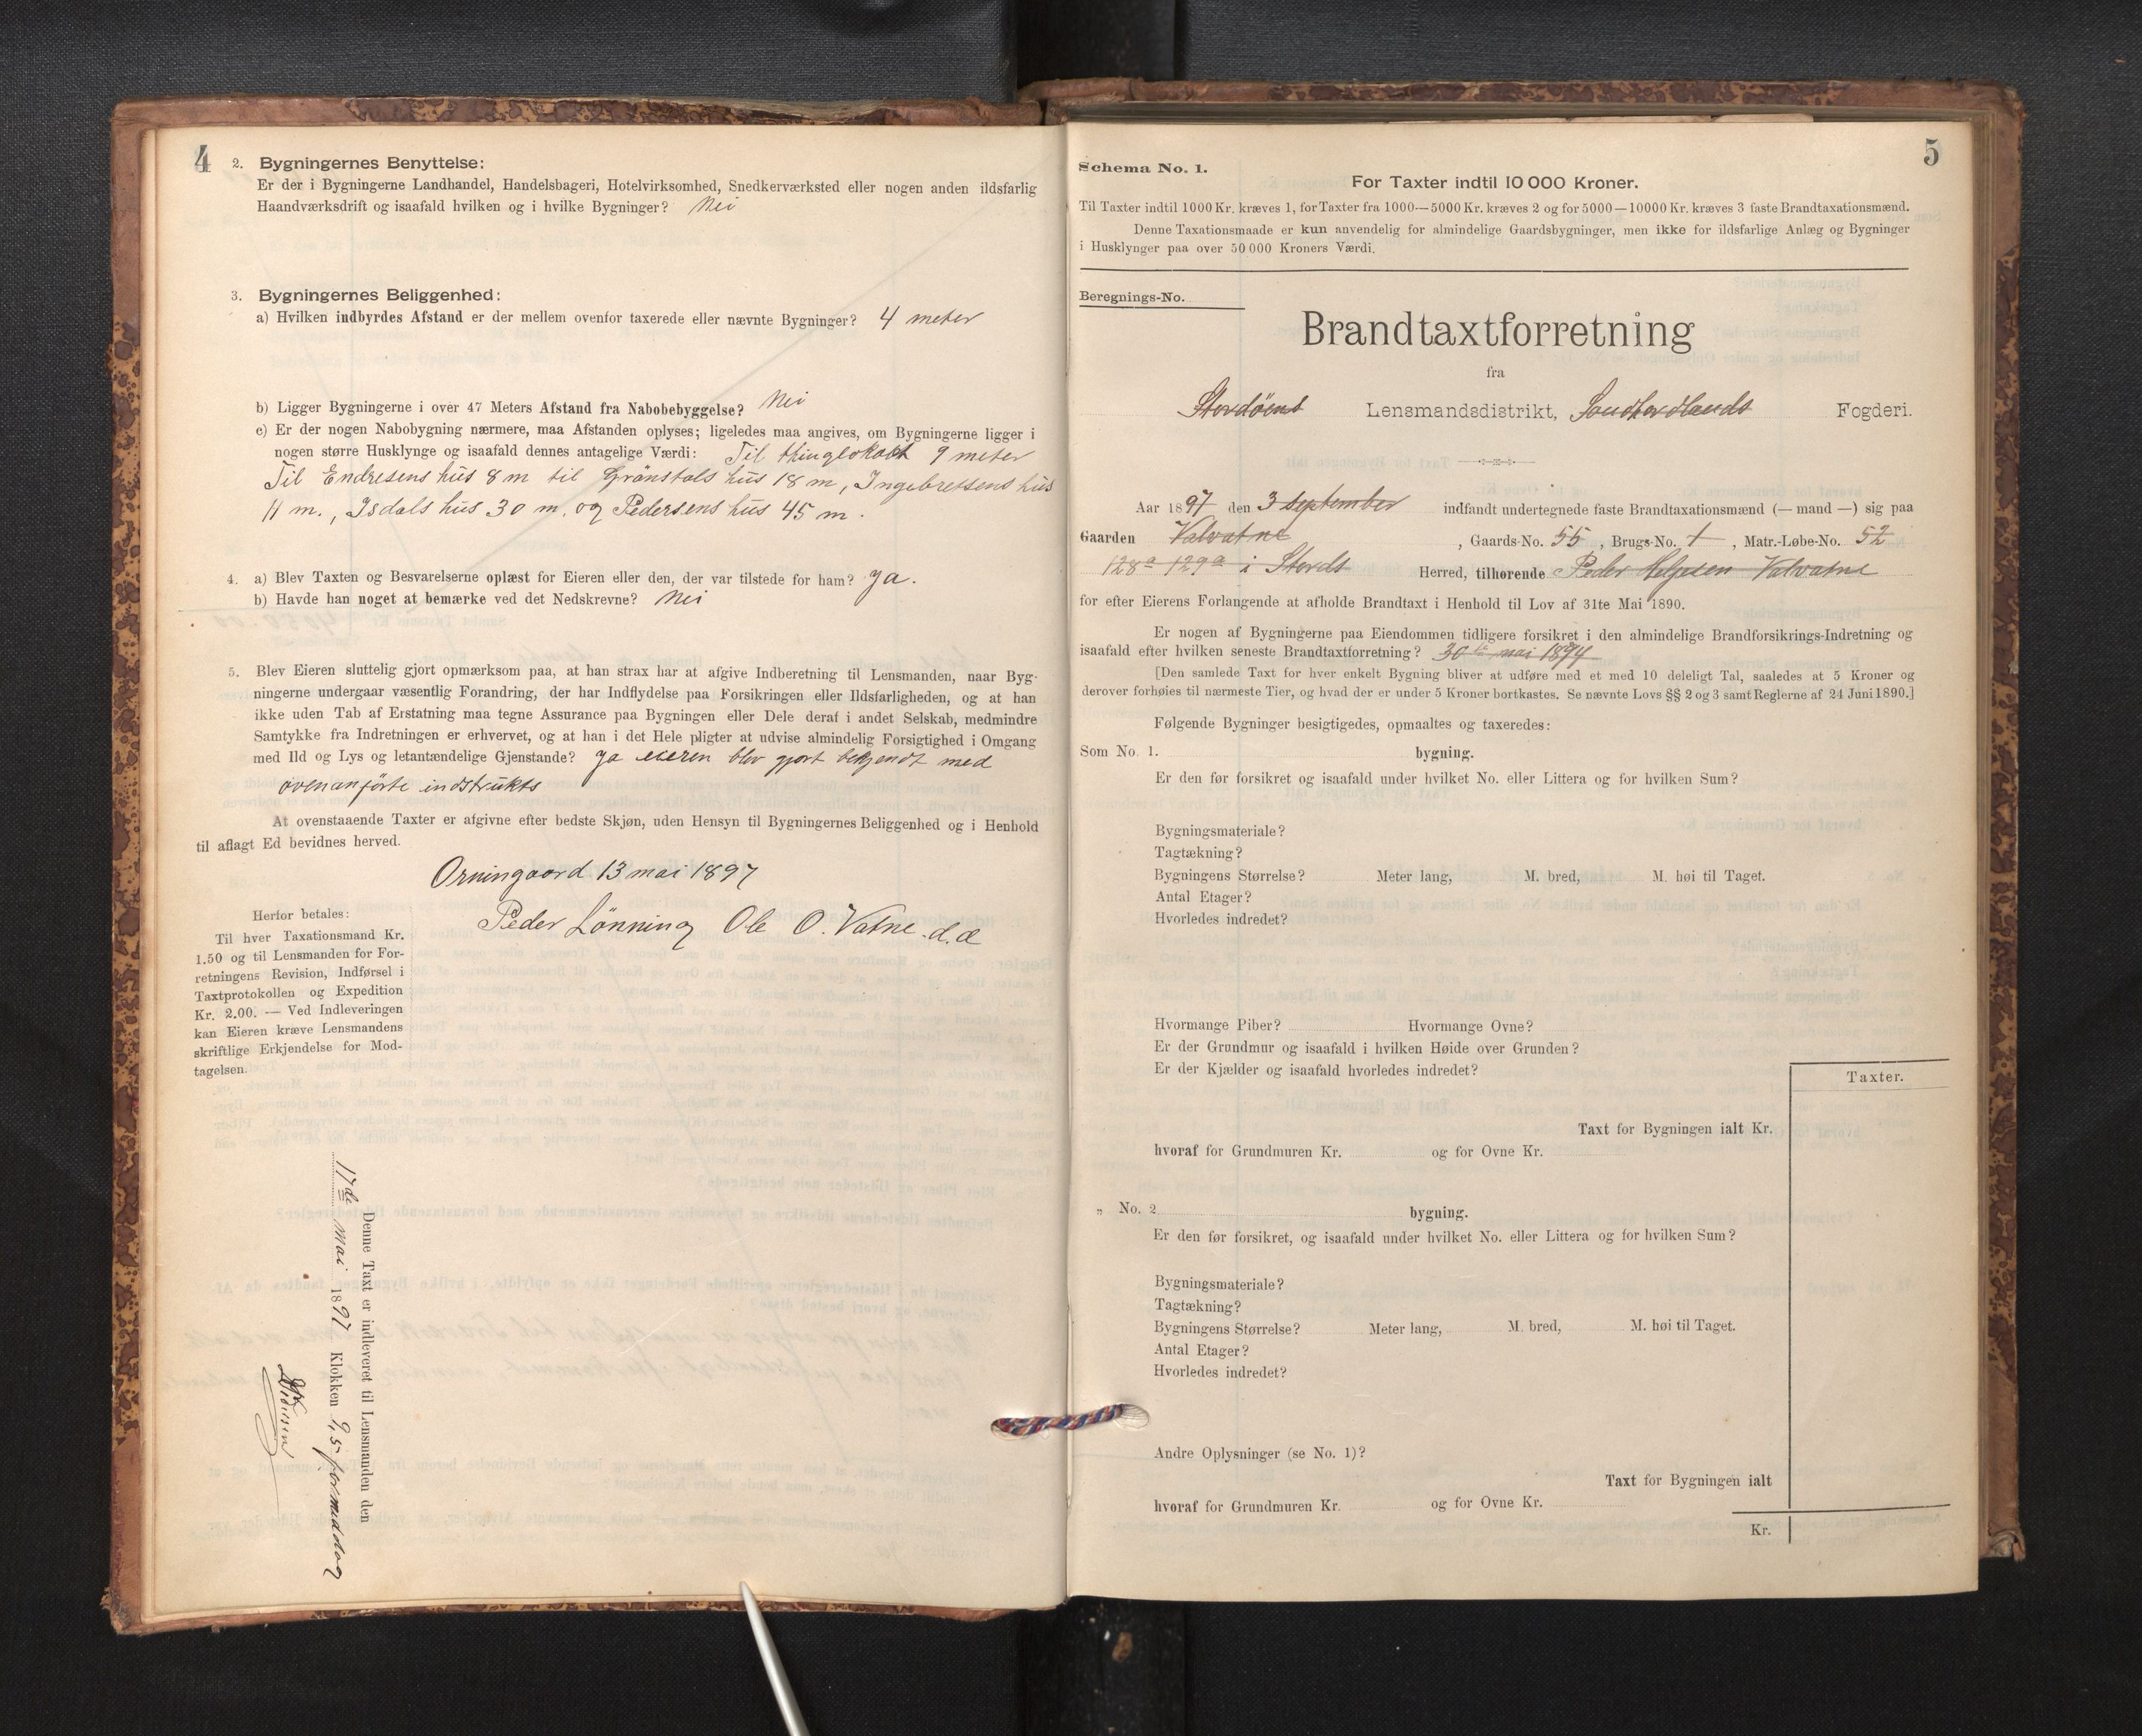 4
2. Bygningernes Benyttelse:
Er der i Bygningerne Landhandel, Handelsbageri, Hotelvirksomhed, Snedkerværksted eller nogen anden ildsfarlig
Haandværksdrift og isaafald hvilken og i hvilke Bygninger? Nei
3. Bygningernes Beliggenhed:
a) Hvilken indbyrdes Afstand er der mellem ovenfor taxerede eller nævnte Bygninger? 4 meter
b) Ligger Bygningerne i over 47 Meters Afstand fra Nabobebyggelse? Nei
c) Er der nogen Nabobygning nærmere, maa Afstanden oplyses; ligeledes maa angives, om Bygningerne ligger i
nogen større Husklynge og isaafald dennes antagelige Værdi: Til thinglokalt 9 meter
Til Endresens hus 8 m til Grönstals hus 18 m, Ingebretsens hus
11 m., Isdals hus 30 m. og Pedersens hus 45 m.
4. a) Blev Taxten og Besvarelserne oplæst for Eieren eller den, der var tilstede for ham? ja.
b) Havde han noget at bemærke ved det Nedskrevne? Nei
5. Blev Eieren sluttelig gjort opmærksom paa, at han strax har at afgive Indberetning til Lensmanden, naar Byg-
ningerne undergaar væsentlig Forandring, der har Indflydelse paa Forsikringen eller Ildsfarligheden, og at han
ikke uden Tab af Erstatning maa tegne Assurance paa Bygningen eller Dele deraf i andet Selskab, medmindre
Samtykke fra Indretningen er erhvervet, og at han i det Hele pligter at udvise almindelig Forsigtighed i Omgang
med Ild og Lys og letantændelige Gjenstande? ja eieren blev gjort bekjendt med
ovenanførte indstrukts
At ovenstaaende Taxter er afgivne efter bedste Skjøn, uden Hensyn til Bygningernes Beliggenhed og i Henhold
til aflagt Ed bevidnes herved.
Orningaard 13 mai 1897
Peder Lönning Ole O. Vatne d.æ
Herfor betales:
Til hver Taxationsmand Kr.
1.50 og til Lensmanden for For-
retningens Revision, Indførsel i
Taxtprotokollen og Expedition
Kr. 2.00. — Ved Indleveringen
kan Eieren kræve Lensmandens
skriftlige Erkjendelse for Mod-
tagelsen.
Denne Taxt er indleveret til Lensmanden den
17de mai 1897 Klokken 9,5 formiddag
5
Schema No. 1.
For Taxter indtil 10 000 Kroner.
Til Taxter indtil 1000 Kr. kræves 1, for Taxter fra 1000—5000 Kr. kræves 2 og for 5000—10000 Kr. kræves 3 faste Brandtaxationsmænd.
Denne Taxationsmaade er kun anvendelig for almindelige Gaardsbygninger, men ikke for ildsfarlige Anlæg og Bygninger
i Husklynger paa over 50 000 Kroners Værdi.
Beregnings-No.
Brandtaxtforretning
fra
Stordöens Lensmandsdistrikt, Søndhordlands Fogderi.
Aar 1897 den 3 September indfandt undertegnede faste Brandtaxationsmænd (— mand —) sig paa
Gaarden Valvatne, Gaards-No. 55, Brugs-No. 1, Matr.-Løbe-No. 52
128a 129a i Stords Herred, tilhørende Peder Helgesen Valvatne
for efter Eierens Forlangende at afholde Brandtaxt i Henhold til Lov af 31te Mai 1890.
Er nogen af Bygningerne paa Eiendommen tidligere forsikret i den almindelige Brandforsikrings-Indretning og
isaafald efter hvilken seneste Brandtaxtforretning? 30te mai 1874
[Den samlede Taxt for hver enkelt Bygning bliver at udføre med et med 10 deleligt Tal, saaledes at 5 Kroner og
derover forhøies til nærmeste Tier, og hvad der er under 5 Kroner bortkastes. Se nævnte Lovs §§ 2 og 3 samt Reglerne af 24 Juni 1890.]
Følgende Bygninger besigtigedes, opmaaltes og taxeredes:
Som No. 1. bygning.
Er den før forsikret og isaafald under hvilket No. eller Littera og for hvilken Sum?
Bygningsmateriale?
Tagtækning?
Bygningens Størrelse? Meter lang, M. bred, M. høi til Taget.
Antal Etager?
Hvorledes indredet?
Hvormange Piber? Hvormange Ovne?
Er der Grundmur og isaafald i hvilken Høide over Grunden?
Er der Kjælder og isaafald hvorledes indredet?
Taxter.
Taxt for Bygningen ialt Kr.
hvoraf for Grundmuren Kr. og for Ovne Kr.
„ No. 2 bygning.
Er den før forsikret, og isaafald under hvilket No. eller Littera og for hvilken Sum?
Bygningsmateriale?
Tagtækning?
Bygningens Størrelse? Meter lang, M. bred, M. høi til Taget.
Antal Etager?
Hvorledes indredet?
Andre Oplysninger (se No. 1)?
Taxt for Bygningen ialt
hvoraf for Grundmuren Kr. og for Ovne Kr.
Kr.